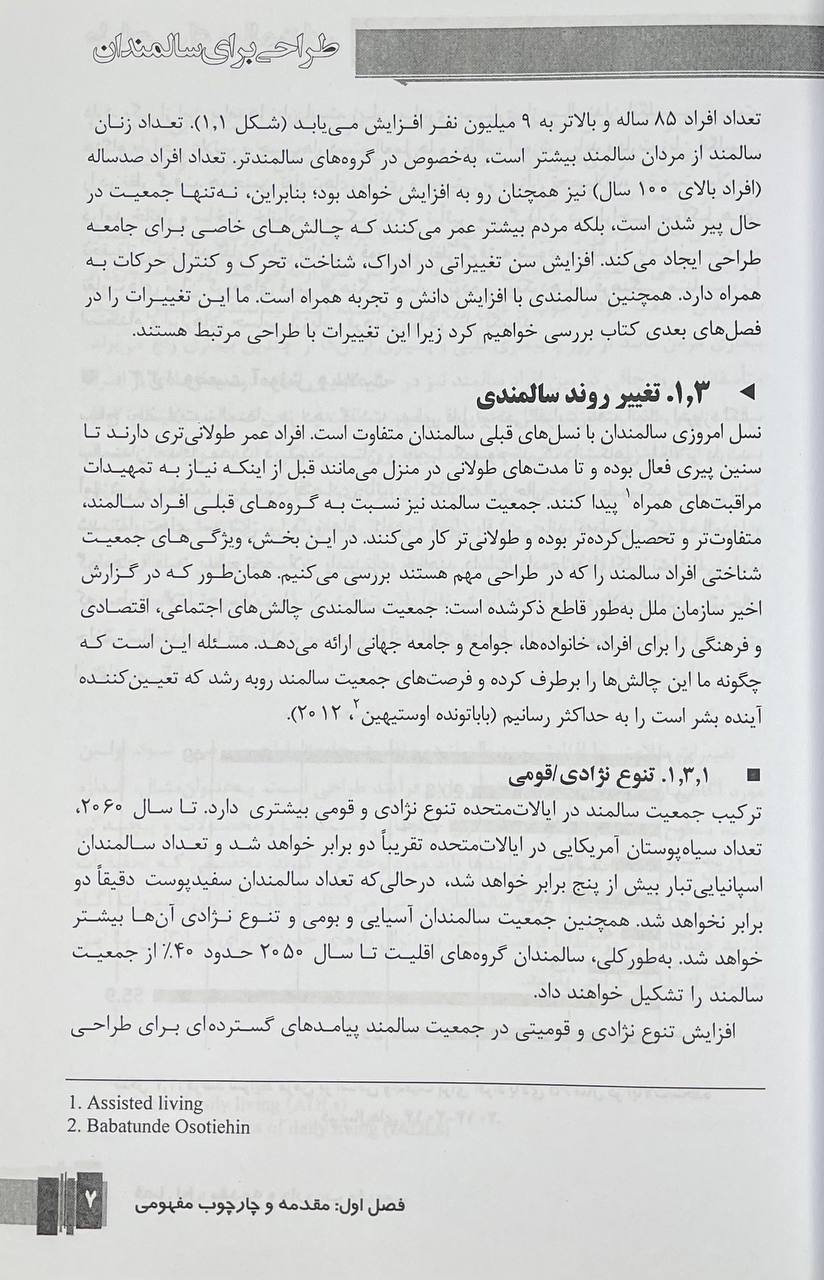 طراحی برای سالمندان
تعداد افراد ۸۵ ساله و بالاتر به ۹ میلیون نفر افزایش می‌یابد (شکل ۱,۱). تعداد زنان
سالمند از مردان سالمند بیشتر است، به‌خصوص در گروه‌های سالمندتر. تعداد افراد صدساله
(افراد بالای ۱۰۰ سال) نیز همچنان رو به افزایش خواهد بود؛ بنابراین، نه‌تنها جمعیت در
حال پیر شدن است، بلکه مردم بیشتر عمر می‌کنند که چالش‌های خاصی برای جامعه
طراحی ایجاد می‌کند. افزایش سن تغییراتی در ادراک، شناخت، تحرک و کنترل حرکات به
همراه دارد. همچنین سالمندی با افزایش دانش و تجربه همراه است. ما این تغییرات را در
فصل‌های بعدی کتاب بررسی خواهیم کرد زیرا این تغییرات با طراحی مرتبط هستند.
◄ ۱,۳. تغییر روند سالمندی
نسل امروزی سالمندان با نسل‌های قبلی سالمندان متفاوت است. افراد عمر طولانی‌تری دارند تا
سنین پیری فعال بوده و تا مدت‌های طولانی در منزل می‌مانند قبل از اینکه نیاز به تمهیدات
مراقبت‌های همراه۱ پیدا کنند. جمعیت سالمند نیز نسبت به گروه‌های قبلی افراد سالمند،
متفاوت‌تر و تحصیل‌کرده‌تر بوده و طولانی‌تر کار می‌کنند. در این بخش، ویژگی‌های جمعیت
شناختی افراد سالمند را که در طراحی مهم هستند بررسی می‌کنیم. همان‌طور که در گزارش
اخیر سازمان ملل به‌طور قاطع ذکرشده است: جمعیت سالمندی چالش‌های اجتماعی، اقتصادی
و فرهنگی را برای افراد، خانواده‌ها، جوامع و جامعه جهانی ارائه می‌دهد. مسئله این است که
چگونه ما این چالش‌ها را برطرف کرده و فرصت‌های جمعیت سالمند روبه رشد که تعیین‌کننده
آینده بشر است را به حداکثر رسانیم (باباتونده اوستیهین۲، ۲۰۱۲).
■ ۱,۳,۱. تنوع نژادی/قومی
ترکیب جمعیت سالمند در ایالات‌متحده تنوع نژادی و قومی بیشتری دارد. تا سال ۲۰۶۰،
تعداد سیاه‌پوستان آمریکایی در ایالات‌متحده تقریباً دو برابر خواهد شد و تعداد سالمندان
اسپانیایی‌تبار بیش از پنج برابر خواهد شد، درحالی‌که تعداد سالمندان سفیدپوست دقیقاً دو
برابر نخواهد شد. همچنین جمعیت سالمندان آسیایی و بومی و تنوع نژادی آن‌ها بیشتر
خواهد شد. به‌طورکلی، سالمندان گروه‌های اقلیت تا سال ۲۰۵۰ حدود ۴۰٪ از جمعیت
سالمند را تشکیل خواهند داد.
افزایش تنوع نژادی و قومیتی در جمعیت سالمند پیامدهای گسترده‌ای برای طراحی
1. Assisted living
2. Babatunde Osotiehin
فصل اول: مقدمه و چارچوب مفهومی
۷